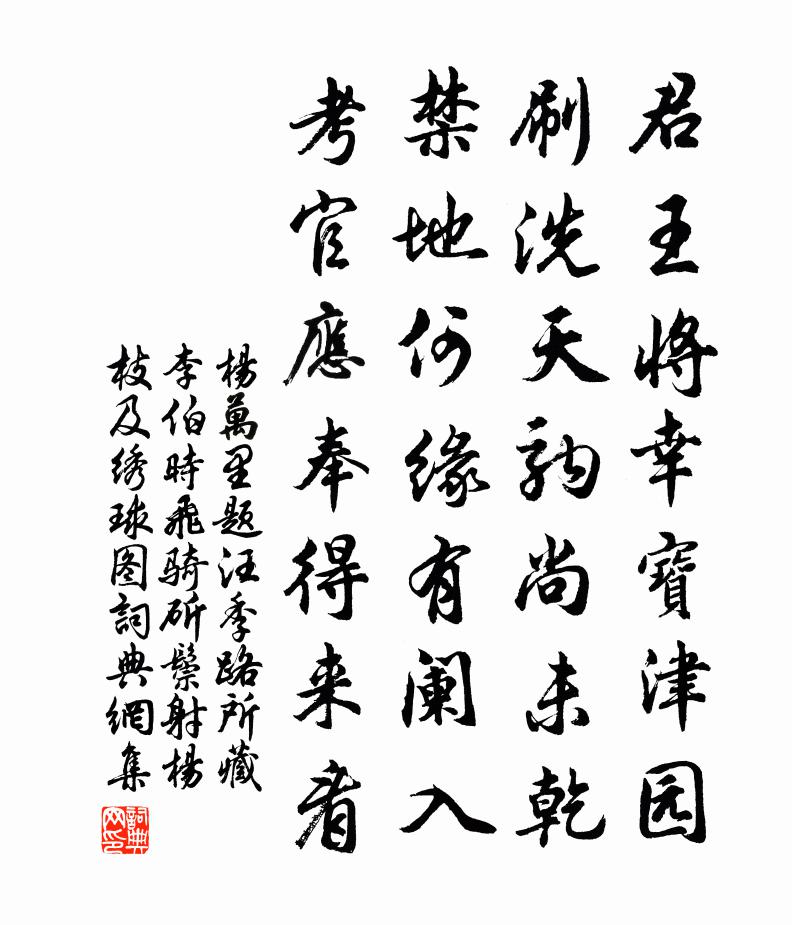 君王将幸寶津园
刷洗天駒尚未乾
禁地何缘有阑入
考官應奉得来看
楊萬里题汪季路所藏
李伯時飛骑斫鬃射楊
枝及绣球图詞典網集
詞典网印